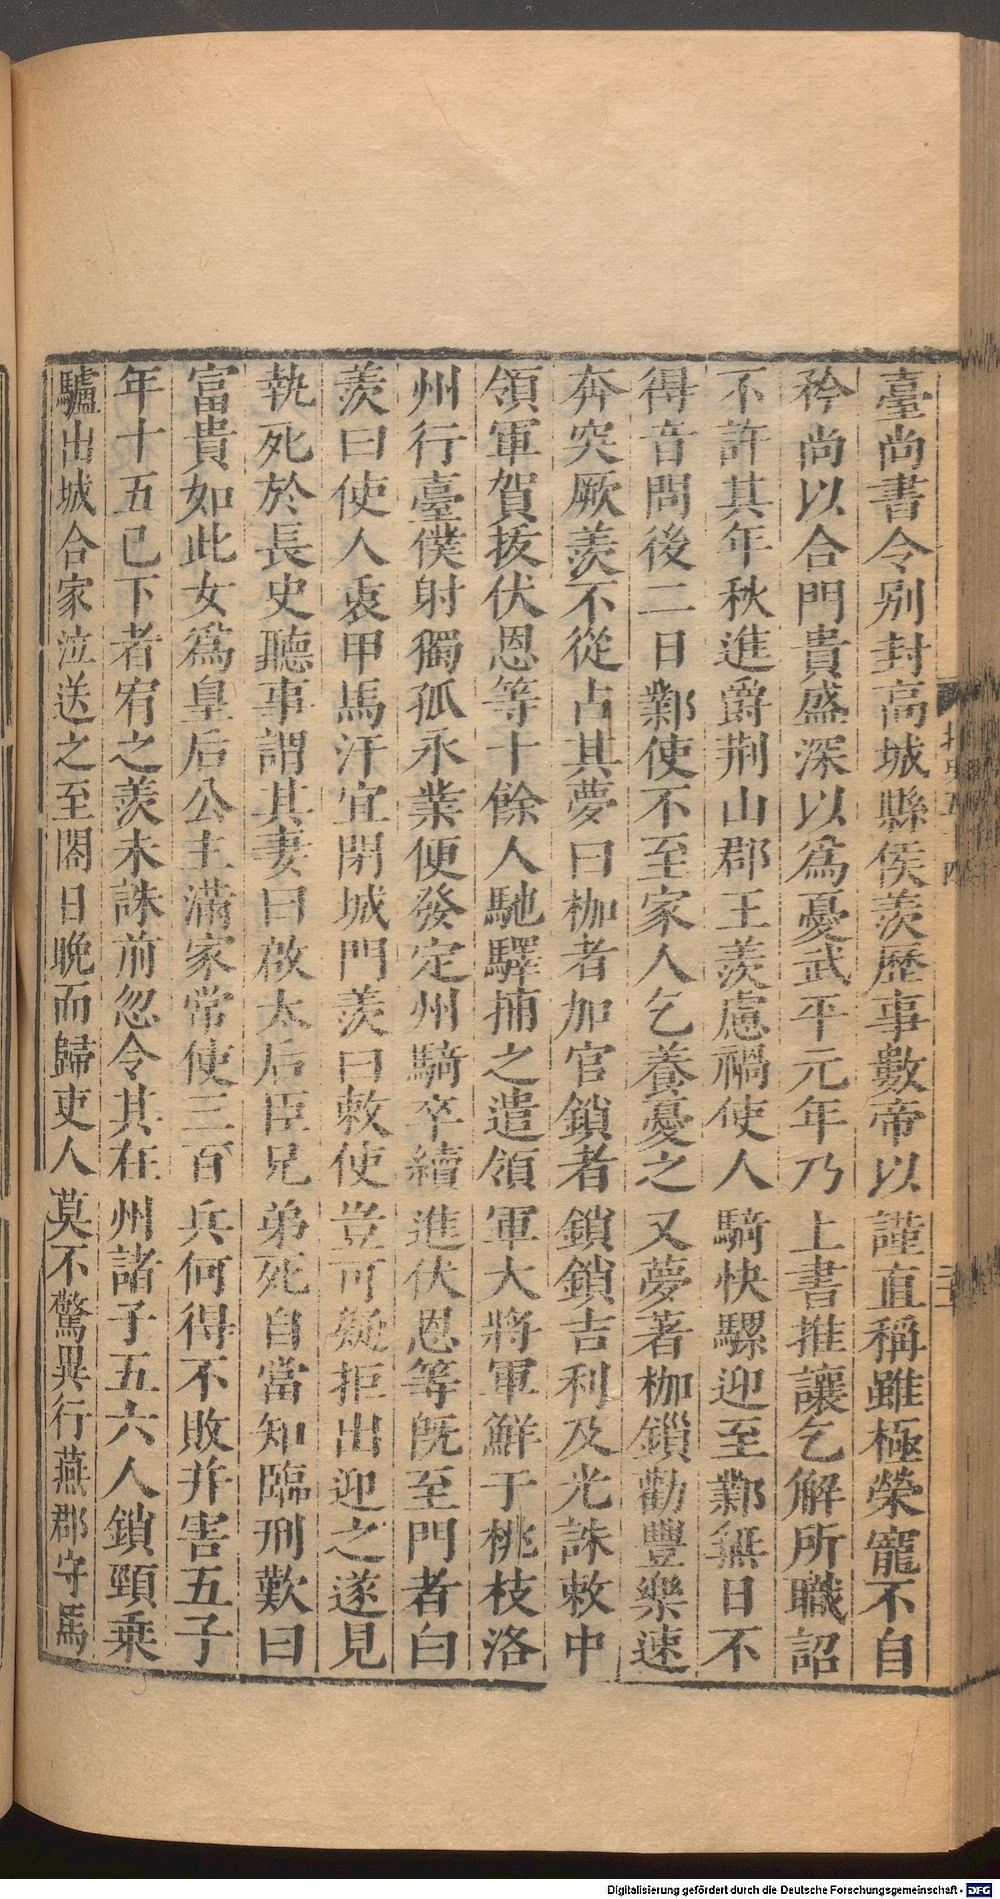 臺尚書令别封高城縣侯羨歷事數帝以謹直稱雖極榮寵不自
矜尚以合門貴盛深以爲憂武平元年乃上書推讓乞解所職詔
不許其年秋進爵荆山郡王羨慮禍使人騎快騾迎至鄴無日不
得音問後二日鄴使不至家人乞養憂之又夢著枷鎖勸豐樂速
奔突厥羨不從占其夢曰枷者加官鎖者鎖鎖吉利及光誅敕中
領軍賀拔伏恩等十餘人馳驛捕之遣領軍大將軍鮮于桃枝洛
州行臺僕射獨孤永業便發定州騎卒續進伏恩等既至門者白
羨曰使人衷甲馬汗宜閉城門羨曰敕使豈可疑拒出迎之遂見
執死於長史聽事謂其妻曰啟太后臣兄弟死自當知臨刑歎曰
富貴如此女爲皇后公主滿家常使三百兵何得不敗并害五子
年十五已下者宥之羨未誅前忽令其在州諸子五六人鎖頸乗
驢出城合家泣送之至閤日晚而歸吏人莫不驚異行燕郡守馬
Digitalisierung gefördert durch die Deutsche Forschungsgemeinschaft - DFG